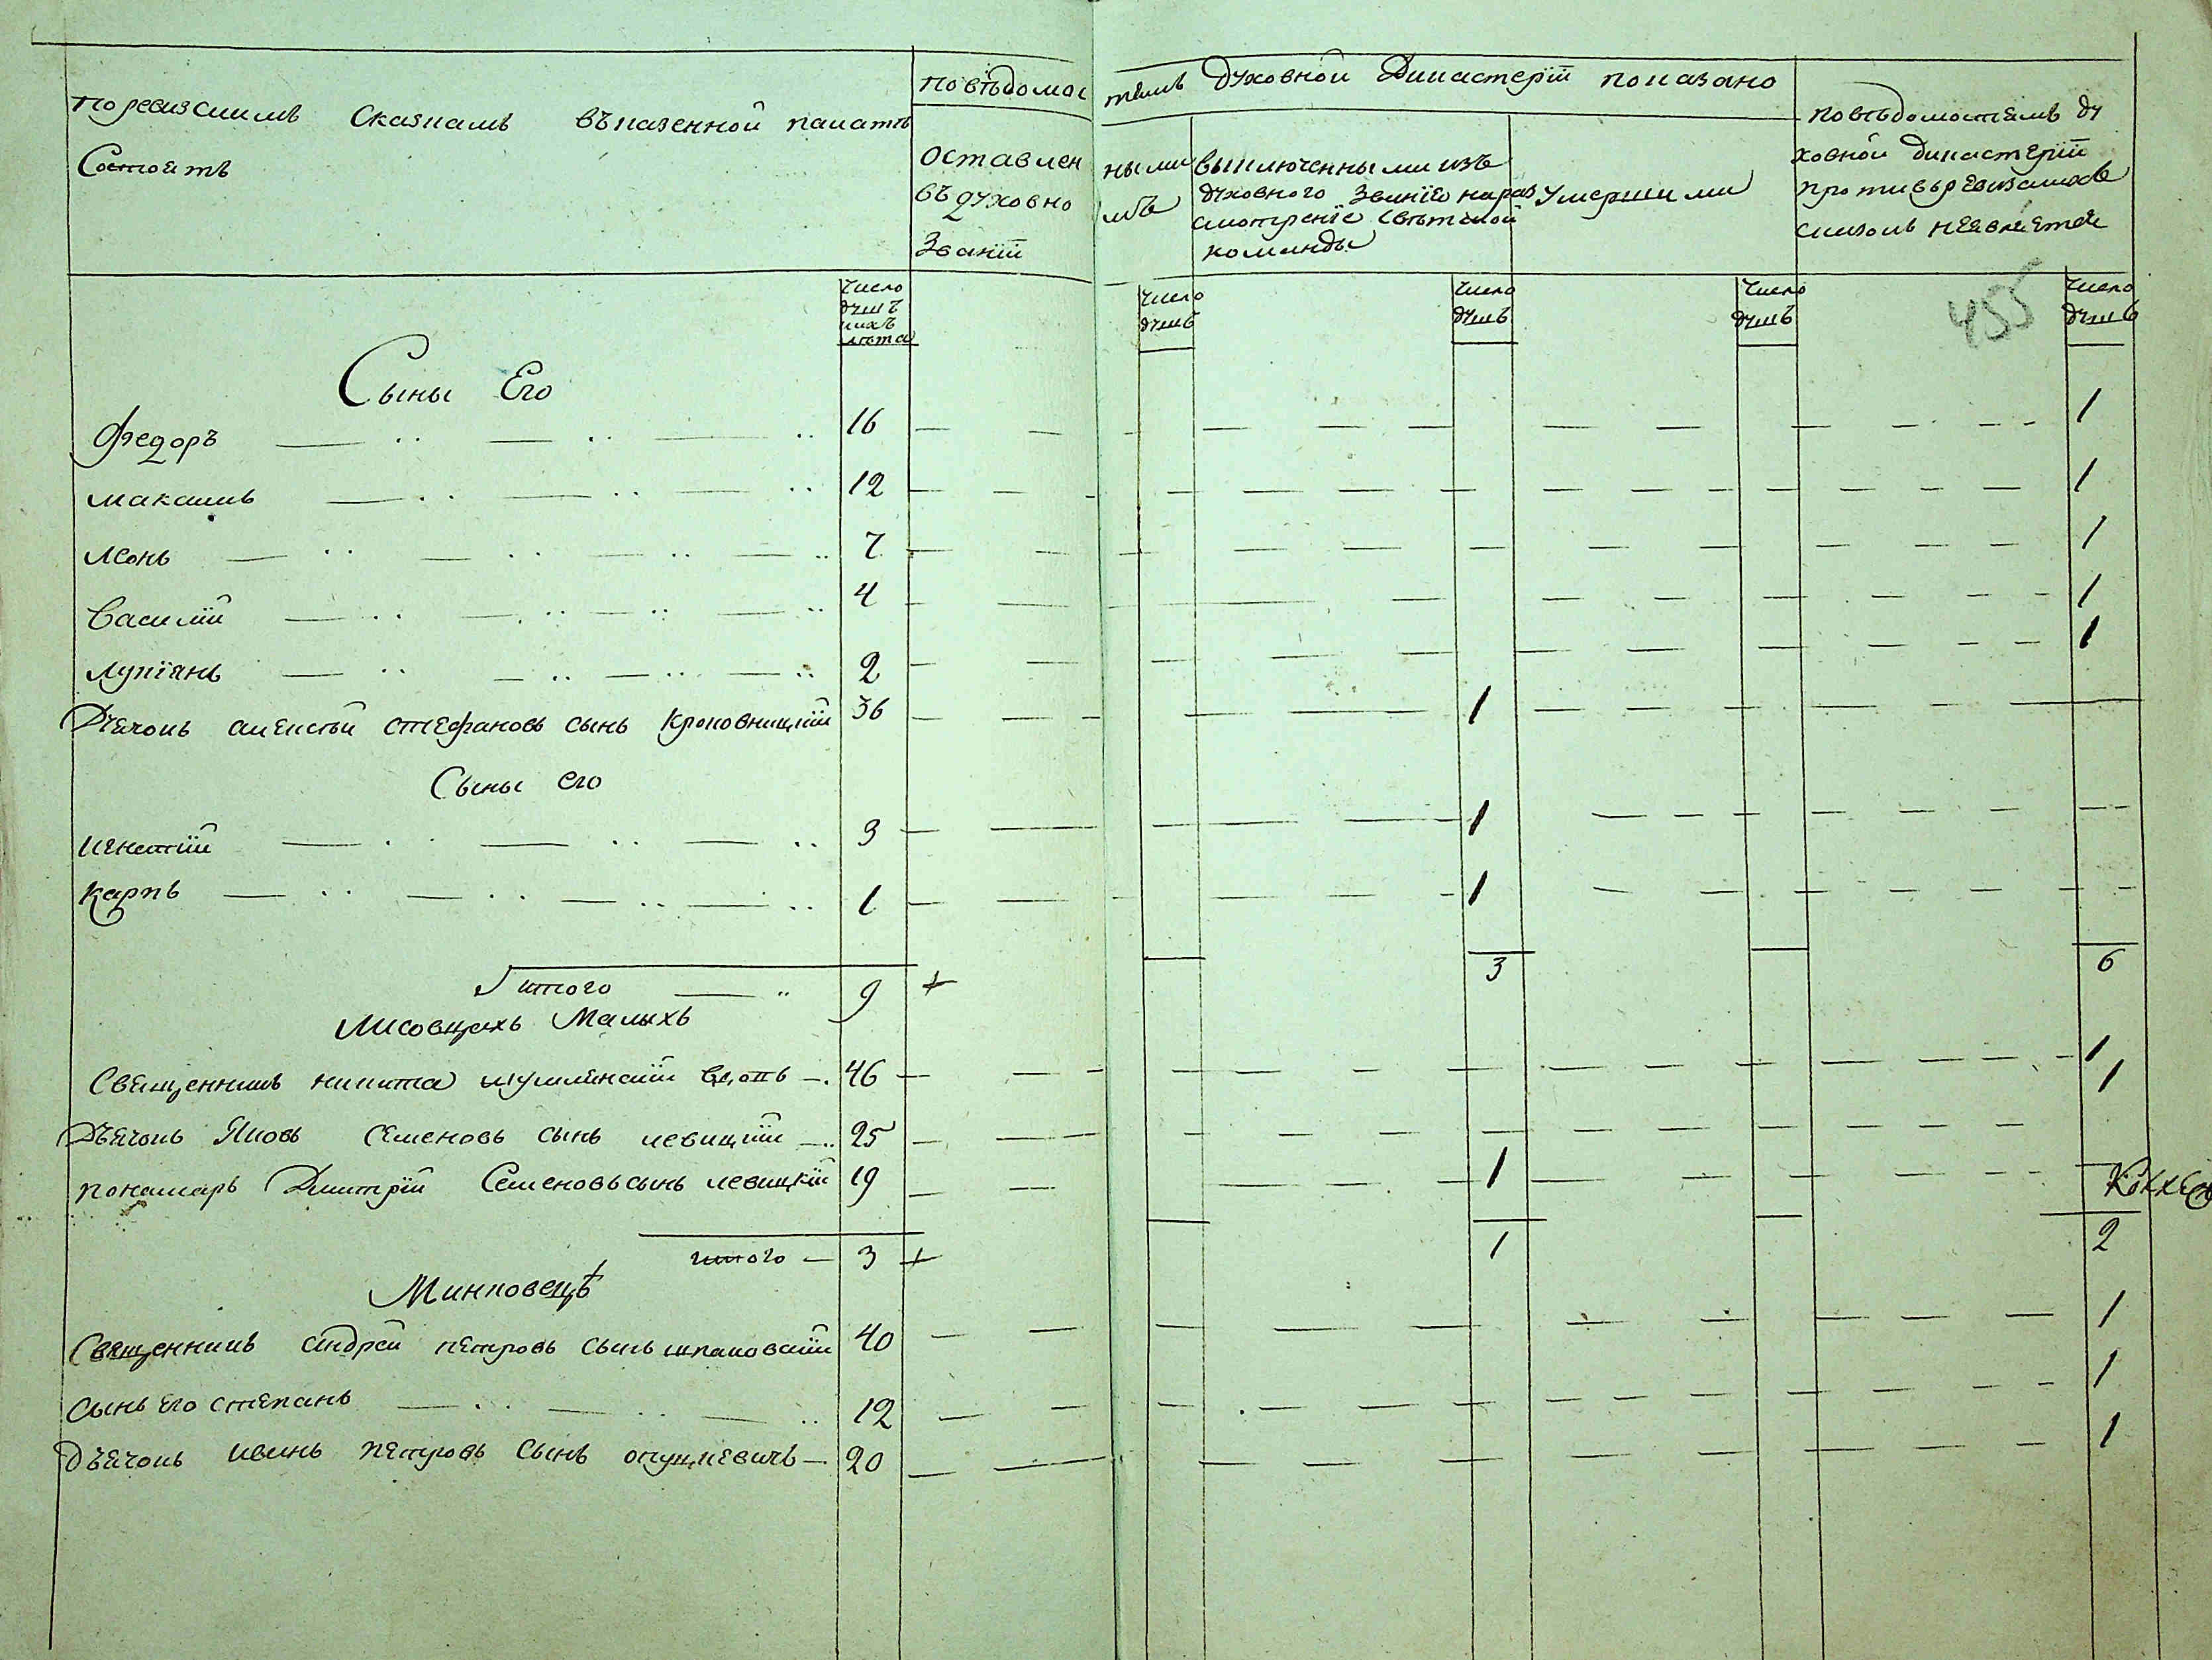 поведомостямъ Духовной Дикастерїи показано
поревизскимъ Сказкамъ въказенной палатѣ
Состоитъ
Оставленными
въ духовномъ
Званїи
выключенными изъ
духовного Званїя нараз
смотренїе Свѣтской
команды
Умершими
повѣдомостямъ ду
ховной дикастерїи
противъ ревизскихъ
сказокъ неявляется
Число
душъ
ихъ
лѣта
Число
душъ
Число
душъ
Число
душъ
Число
душъ
455
Сыны Его
Федоръ 16 1
Максимъ 12 1
Леонъ 7 1
Василїй 4 1
Лукїянъ 2 1
Дьячокъ алексѣй стефановъ сынъ Кроковницкїй 36 1
Сыны его
игнатїй 3 1
Карпъ 1 1
итого 9 3 6
Лисовцахъ Малыхъ
Священникъ никита шумлянскїй 46 1
Дьячокъ Яковъ Семеновъ сынъ левицкїй 25 1
понамарь Димитрїй Семеновъ сынъ левицкїй 19 1
итого 3 1 2
Минковецъ
Священникъ андрей петровъ сынъ шпаковскїй 40 1
Сынъ его степанъ 12 1
Дьячокъ иванъ петровъ сынъ 20 1